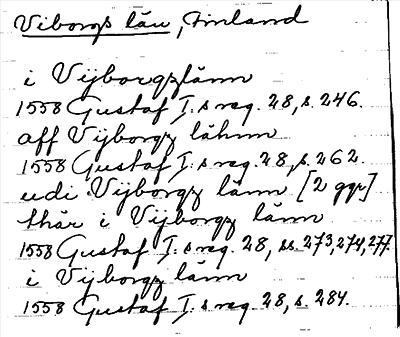 Viborgs län, Finland
i Vijborgzlänn
1558 Gustaf I.s reg. 28, s. 246.
aff Vijborgz lähnn
1558 Gustaf I.s reg. 28, s. 262.
udi Vijborgz länn [2 ggr]
thär i Vijborgz länn
1558 Gustaf I.s reg. 28, ss. 273, 274, 277.
i Vijborgz länn
1558 Gustaf I.s reg. 28, s. 284.